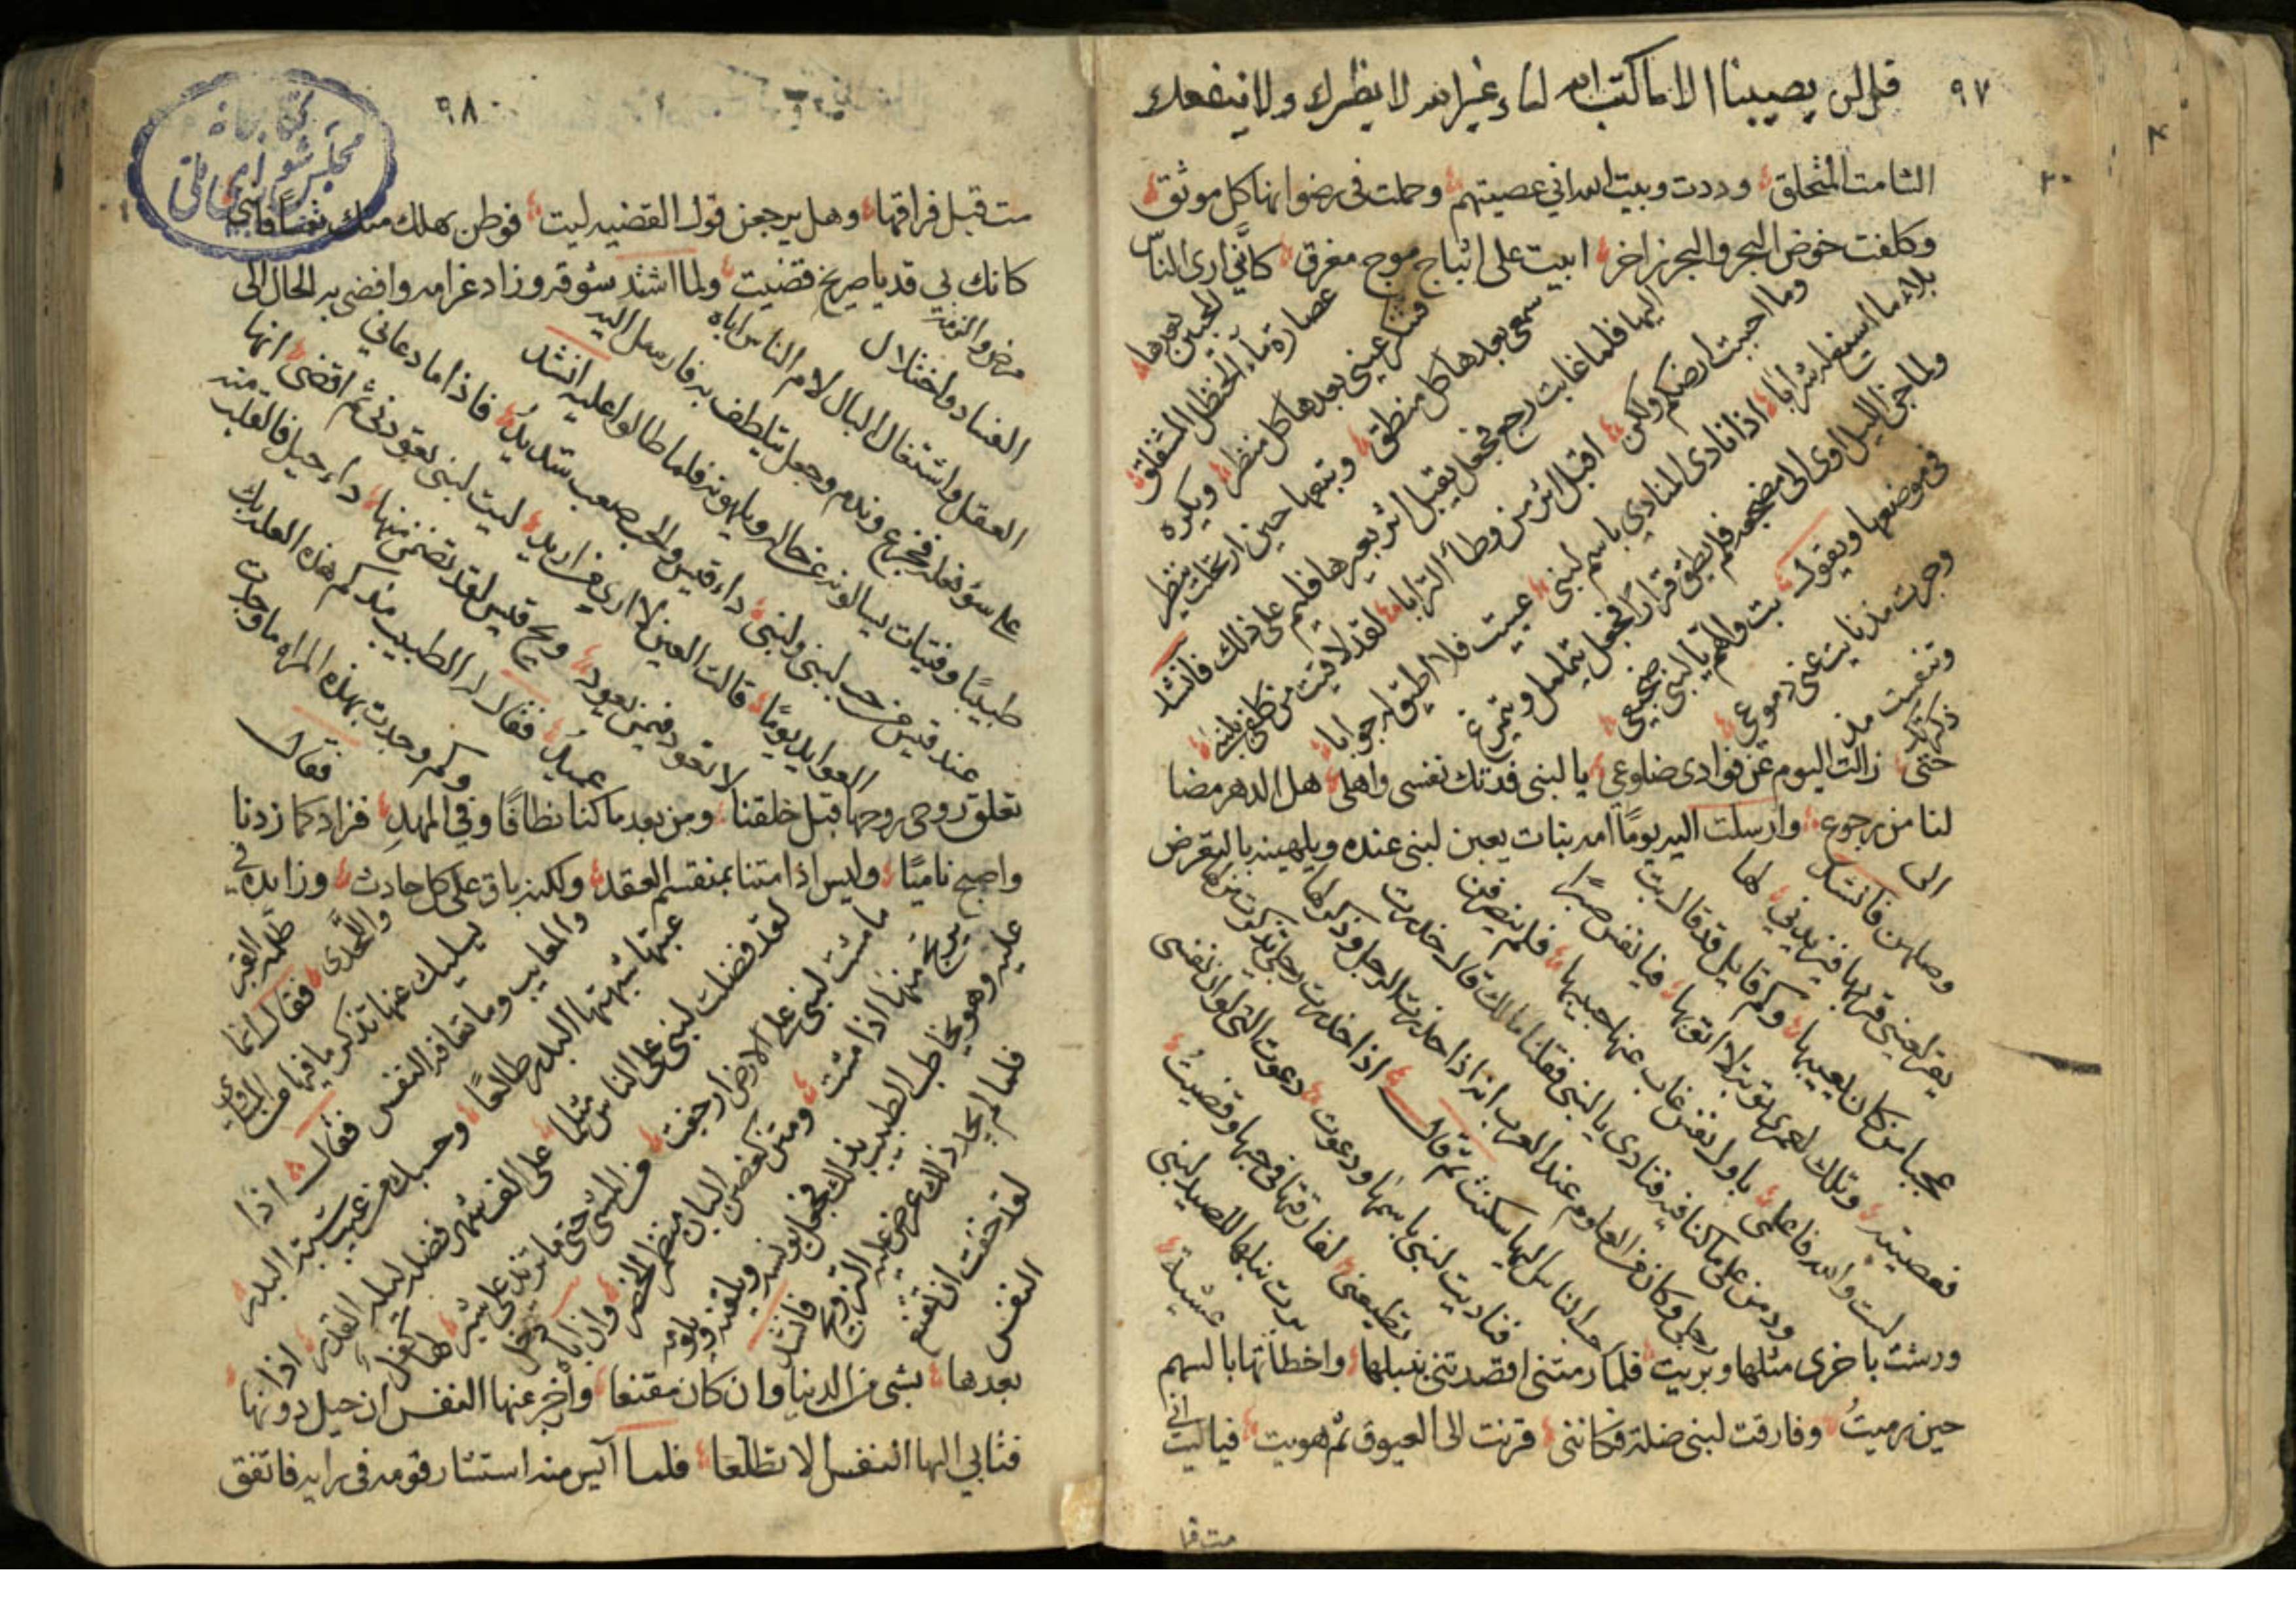 ٩٧
قل لن يصيبنا الا ما كتب الله لنا وغير الله لا يظرك ولا ينفعك
الشامت المتخلق وددت وبيت الله اني عصيتهم وحملت في رضوانها كل موثق
وكلفت خوض البحر والبحر زاخر ابيت على اثباج موج مغرق كأني ارى الناس
الحبين بعدها
عصارة ماء الحنظل المتفلق
فتنكر عيني بعدها كل منظر ويكره
سمعي بعدها كل منطق وتبعها حين ارتحلت ينظر
اليها فلما غابت رجع فجعل يقبل اثر بعيرها فليم على ذلك فانشد
وما احببت ارضكم ولكن اقبل اثر من وطأ الترابا لقد لاقيت من كلفي بلبنى
بلاء ما اسيغ له شرابا اذا نادى المنادي باسم لبنى عييت فلا اطيق له جوابا
ولما جن الليل اوى الى مضجعه فلم يطق قرارا فجعل يتململ ويتمرغ
في موضعها ويقول بت والهم يا لبنى ضجيعي
وجرت مذ نايت عني دموعي
وتنفست مذ
ذكرتك
حتى زالت اليوم عن فوادي ضلوعي يا لبنى فدتك نفسي واهلي هل الدهر مضا
لنا من رجوع وارسلت اليه يوما امه بنات يعبن لبنى عنده ويلهينه بالتعرض
الى
وصلهن فانشد لها
يقر لعيني قربها فيزيدني
عجبا من كان يعيبها وكم قايل قد قال تب
فعصيته وتلك لعمري توبة لا اتوبها فيا نفس صبرا
لست والله فاعلمي باول نفس غاب عنها حبيبها فلم ينصرفن
ودمن على ما كنا فيه فنادى يا لبنى فقلنا مالك قال خدرت
رجلي وكان من العلوم عند العرب انه اذا خدرت الرجل وذكرها
حب الناس اليها سكنت ثم قال اذا خدرت رجلي تذكرت من لها
فناديت لبنى باسمها ودعوت دعوت التي لو ان نفسي
تطيعني لفارقتها في حبها وقضيت
برت نبلها للصيد لبنى
عشية
ورشت باخرى مثلها وبريت فلما رمتني اقصدتني بنبلها واخطاتها بالسهم
حين رميت وفارقت لبنى ضلة فكانني قرنت الى العيوق ثم هويت فيا ليت اني
مت قبل
٩٨
كتابخانه
مجلس شورای ملی
مت قبل فراقها وهل يرجعن قول القضيه ليت فوطن بهلك منك نفسا فانني
كانك بي قد يا صريخ قضيت ولما اشتد شوقه وزاد غرامه وافضى به الحال الى
مرض والزمة
الفساد واختلال
العقل واشتغال البال لام الناس اباه
على سوء فعله فجزع وندم وجعل يتلطف به فارسل اليه
طبيبا وفتيات يسالونه عن حاله ويلهونه فلما طالوا عليه انشد
عند قيس من حب لبنى ولبنى داء قيس والحب صعب شديد فاذا ما دعاني
العوايد يوما قالت العين لا ارى من اريد ليت لبنى تعودني ثم اقضى انها
لا تعود فيمن يعود ويح قيس لقد تضمن منها داء خبل فالقلب منه
عميد فقال له الطبيب مذ كم هذه العلة بك
وكم وجدت بهذه المراه ما وجدت
فقال
تعلق روحي روحها قبل خلقنا ومن بعد ما كنا نطافا وفي المهد فزاد كما زدنا
واصبح ناميا وليس اذا متنا بمنقسم العقد ولكنه باق على كل حادث وزايده في
ظلمة القبر
واللحدى فقال انما
يسليك عنها تذكر ما فيها من المساوي
والمعايب وما تعافه النفس فقال اذا
عبتها شبهتها البدر طالعا وحسبك من عيب شبه البدر
لقد فضلت لبنى على الناس مثلما على الف شهر فضلت ليله القدر اذا
ما مشت لبنى على الارض ارجفت من المشي حتى ما تزيد على شبر لها كفل
يرتج منها اذا مشت ومتن كغصن البان منظم الخصر وان اباه دخل
عليه وهو يخاطب الطبيب بذلك فجعل يونبه ويلعنه ويلومه
فلما لم يجد ذلك عرض عليه التزويج فانشد
لقد خفت ان تقنع
النفس
بعدها بشي من الدنيا وان كان مقنعا وازجر عنها النفس ان حيل دونها
فتابي اليها النفس الا تطلعا فلما آيس منه استشار قومه في رايه فاتفق